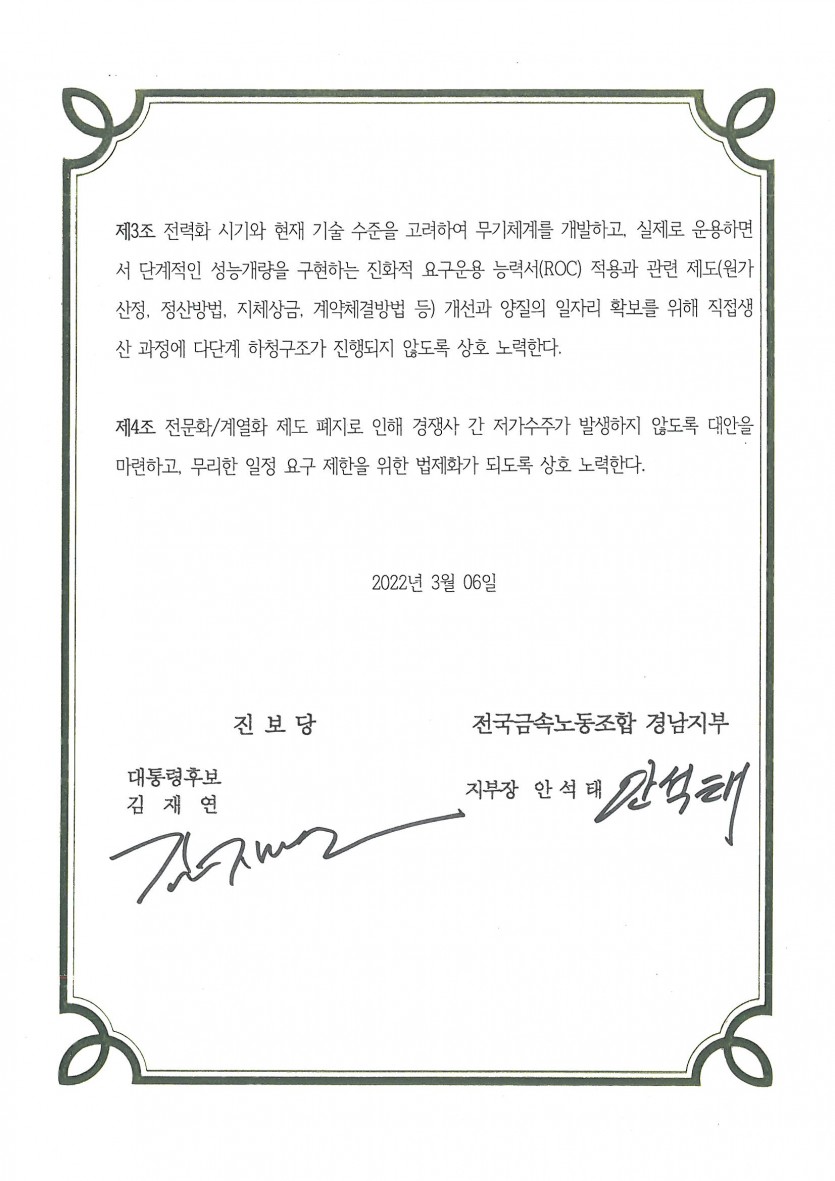 제3조 전력화 시기와 현재 기술 수준을 고려하여 무기체계를 개발하고, 실제로 운용하면
서 단계적인 성능개량을 구현하는 진화적 요구운용 능력서(ROC) 적용과 관련 제도(원가
산정, 정산방법, 지체상금, 계약체결방법 등) 개선과 양질의 일자리 확보를 위해 직접생
산 과정에 다단계 하청구조가 진행되지 않도록 상호 노력한다.
제4조 전문화/계열화 제도 폐지로 인해 경쟁사 간 저가수주가 발생하지 않도록 대안을
마련하고, 무리한 일정 요구 제한을 위한 법제화가 되도록 상호 노력한다.
2022년 3월 06일
진 보 당
대통령후보
김 재 연
김재연
전국금속노동조합 경남지부
지부장 안 석 태 안석태